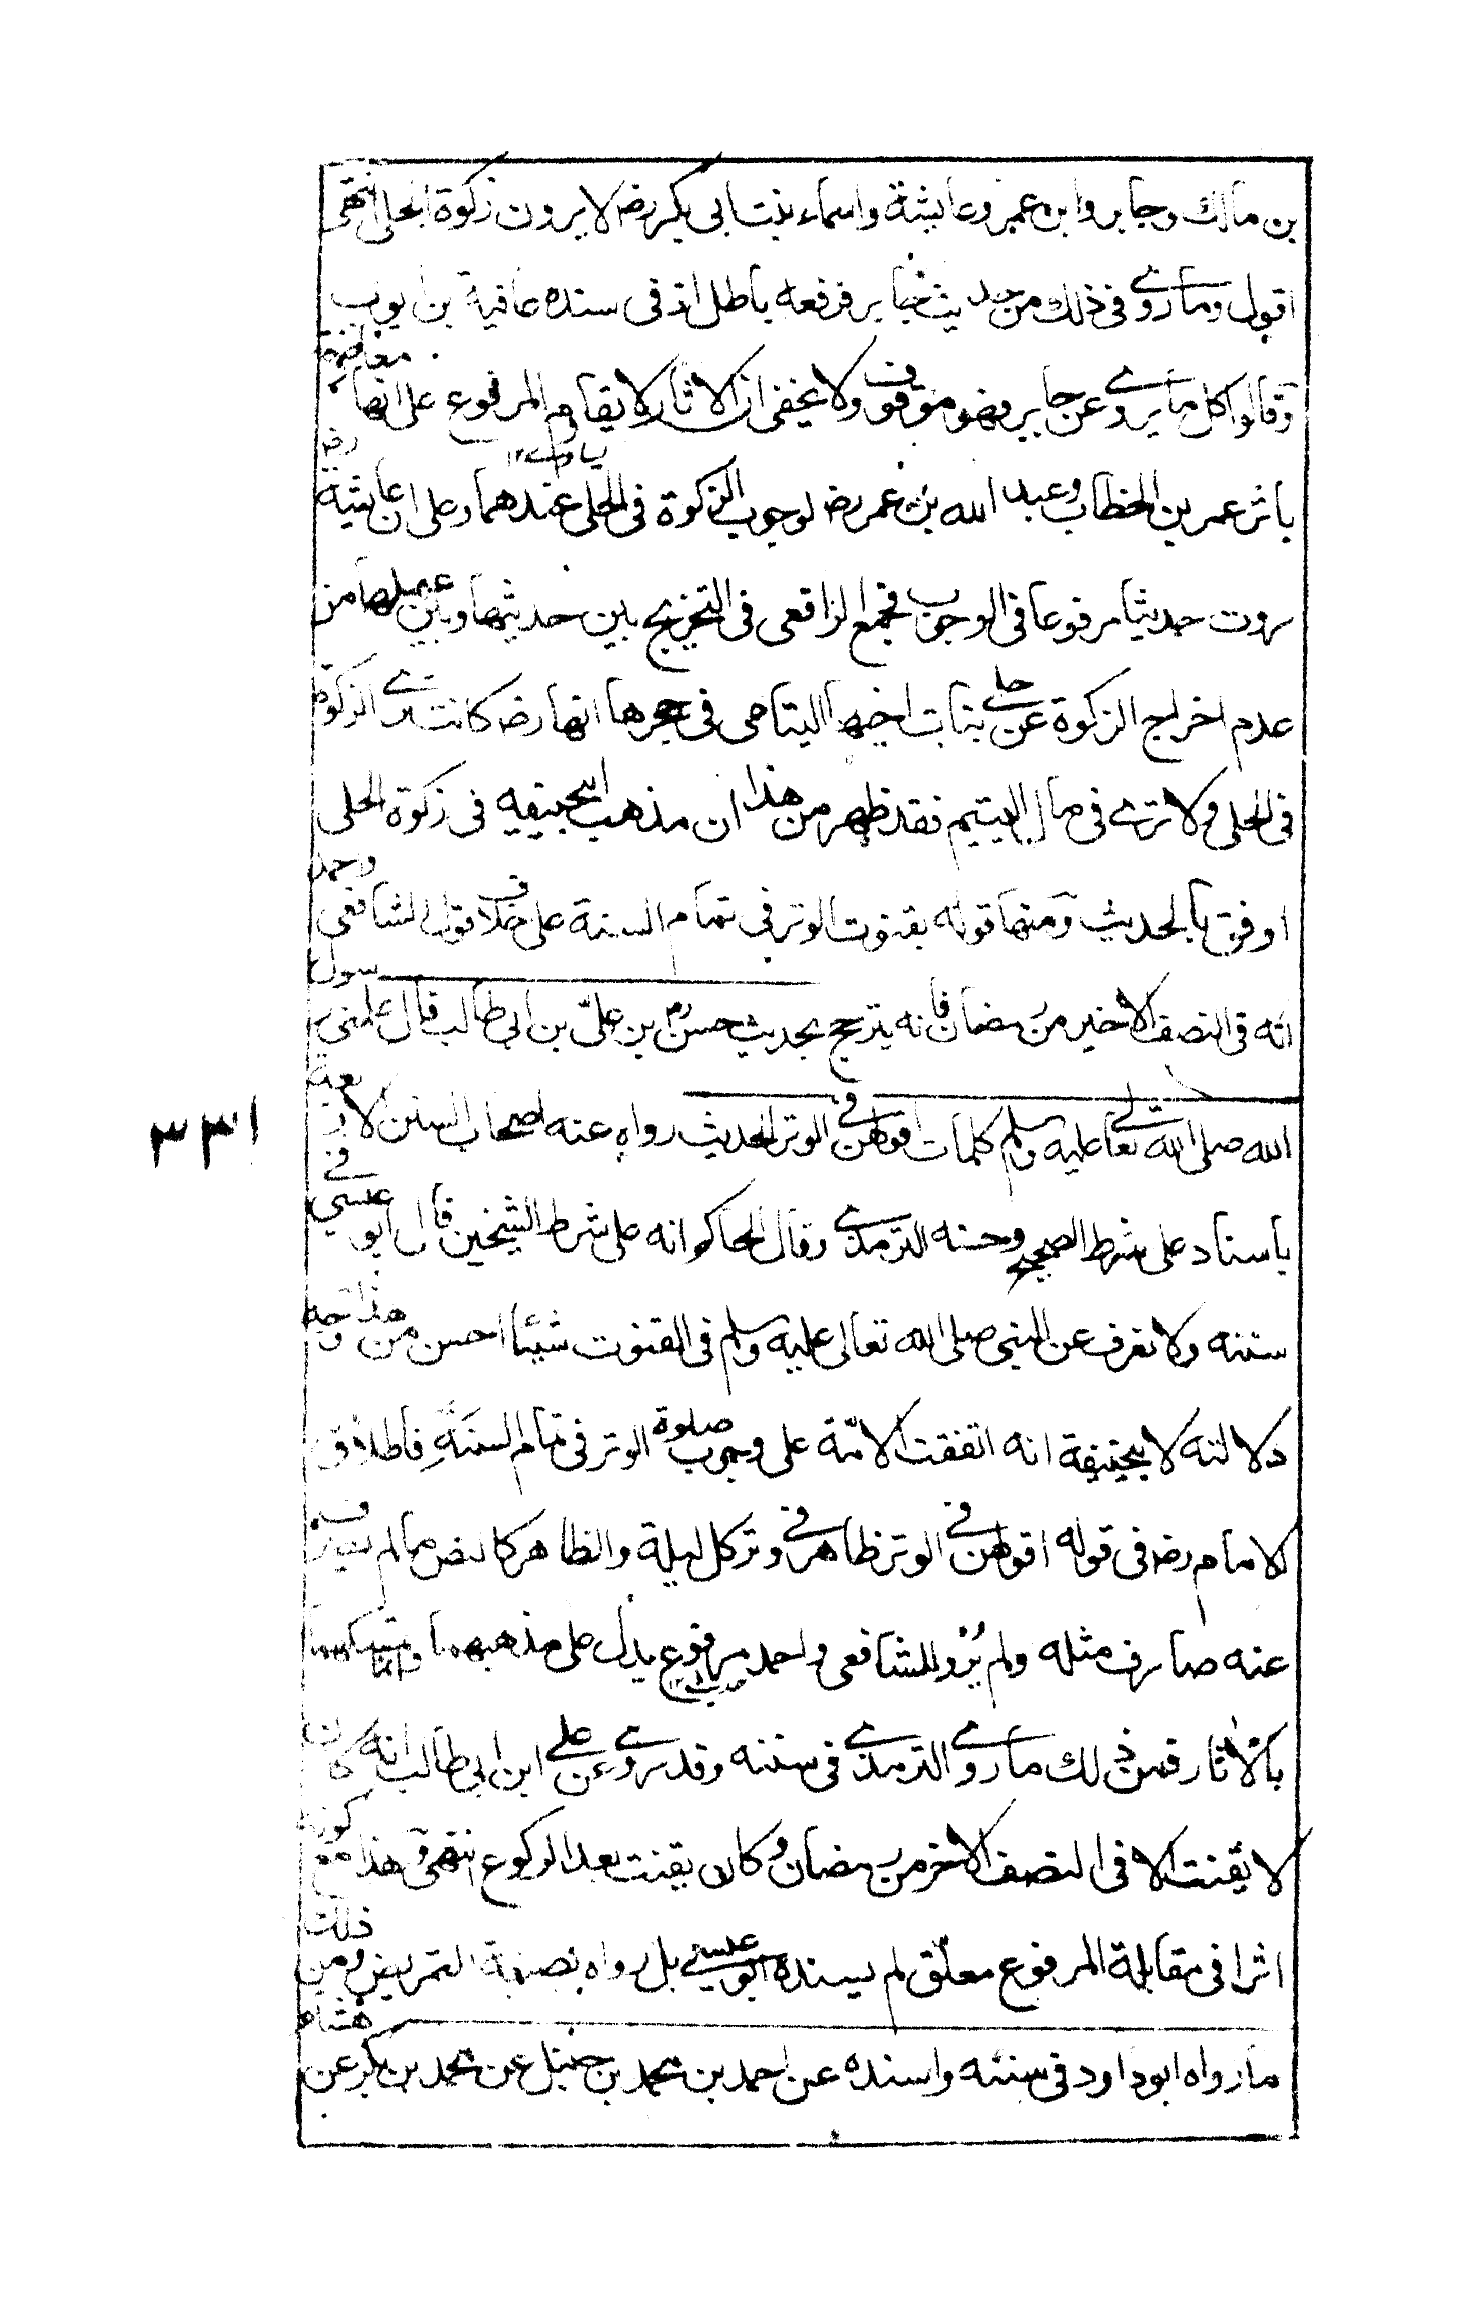 بن مالك وجابر وابن عمر وعايشة واسماء بنت ابى بكر رض لا يرون زكوة الحلى انتهى
اقول وما روى فى ذلك من حديث جابر فرفعه باطل اذ فى سنده عافية بن ايوب
وقالوا كل ما يروى عن جابر فهو موقوف ولا يخفى ان الاثار لا يقاوم المرفوع على انها معارضة
يساوى ١٢
باثر عمر بن الخطاب وعبد الله بن عمر رض لوجوب الزكوة فى الحلى عندهما وعلى ان عايشة رض
روت حديثا مرفوعا فى الوجوب فجمع الرافعى فى التخريج بين حديثها وبين عملها من
عدم اخراج الزكوة عن حلى بنات اخيها اليتامى فى حجرها انها رض كانت ترى الزكوة
فى الحلى ولا ترى فى مال اليتيم فقد ظهر من هذا ان مذهب ابيحنيفه فى زكوة الحلى
اوفق بالحديث ومنها قوله بقنوت الوتر فى تمام السنة على خلاف قول الشافعى وحمد
انه فى النصف الاخير من رمضان فانه يترجح بحديث حسن رض بن علىّ بن ابى طالب قال علمنى رسول
الله صلى الله تعالى عليه وسلم كلمات اقولهن فى الوتر الحديث رواه عنه اصحاب السنن الاربعة
باسناد على شرط الصحيح وحسنه الترمذى وقال الحاكم انه على شرط الشيخين قال ابو عيسى فى
سننه ولا نعرف عن النبى صلى الله تعالى عليه وسلم فى القنوت شيئا احسن من هذا وجه
دلالته لا بيحنيفة انه اتفقت الامّة على وجوب صلوة الوتر فى تمام السنة فاطلاق
الامام رض فى قوله اقولهن فى الوتر ظاهر فى وتر كل ليلة والظاهر كالنص ما لم يصرف
عنه صارف مثله ولم يُرْوَ للشافعى واحمد مرفوع يدل على مذهبهما وانما تمسكهما
بالاثار فمن ذلك ما روى الترمذى فى سننه وقد روى عن على ابن ابى طالب انه كان
لا يقنت الا فى النصف الاخر من رمضان وكان يقنت بعد الركوع انتهى وهذا مع كونه
اثرا فى مقابلة المرفوع معلّق لم يسنده ابو عيسى بل رواه بصيغة التمريض ومن ذلك
ما رواه ابو داود فى سننه واسنده عن احمد بن محمد بن حنبل عن محمد بن بكر عن هشام
٣٣١